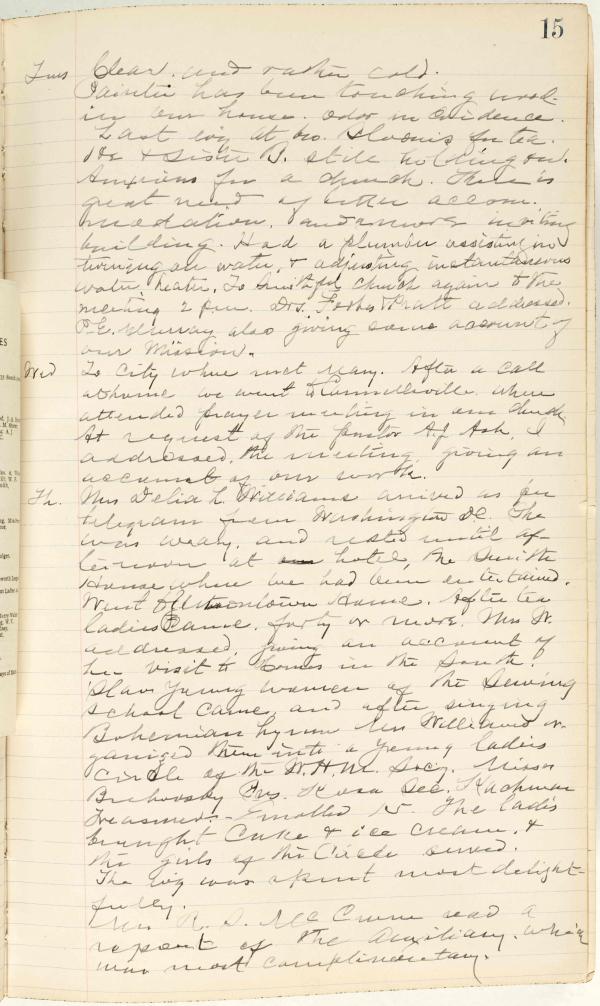 15
Tues Clear and rather cold.
Painter has been touching wood
in our house. Odor in evidence.
Last evg at Bro. for tea.
He & Sister B. still holding on.
Anxious for a church. There is
great need of better accom-
modation, and a more inviting
building. Had a plumber assisting in
turning on water, & adjusting instantaneous
water heater. To Smithfd Church again to the
meeting 2 p.m. Drs. Forbes & Pratt addressed.
P.E. Murray also giving some account of
our Mission.
Wed To City where met Mary. After a call
at home we went to Connellsville where
attended prayer meeting in our church
At request of the pastor A.J. Ash, I
addressed the meeting, giving an
account of our work.
Th. Mrs Delia L. Williams arrived as per
telegram from Washington DC. She
was weary, and rested until af-
ternoon at hotel, the Smith
House where we had been entertained.
Went to Uniontown Home. After tea
ladies came, forty or more. Mrs W.
addressed, giving an account of
her visit to Homes in the South.
Slav young women of the Sewing
School came, and after singing
Bohemian hymn Mrs Williams or-
ganized them into a young ladies
Circle of the W.H.M. Socy. Misses
Pres. Rosa Sec. Kachman
Treasurer. Enrolled 15. The ladies
brought Cake & ice cream, &
the girls of the Circle served.
The evg was spent most delight-
fully.
Mrs R. S. McCrum read a
report of the Auxiliary, which
was most complimentary.